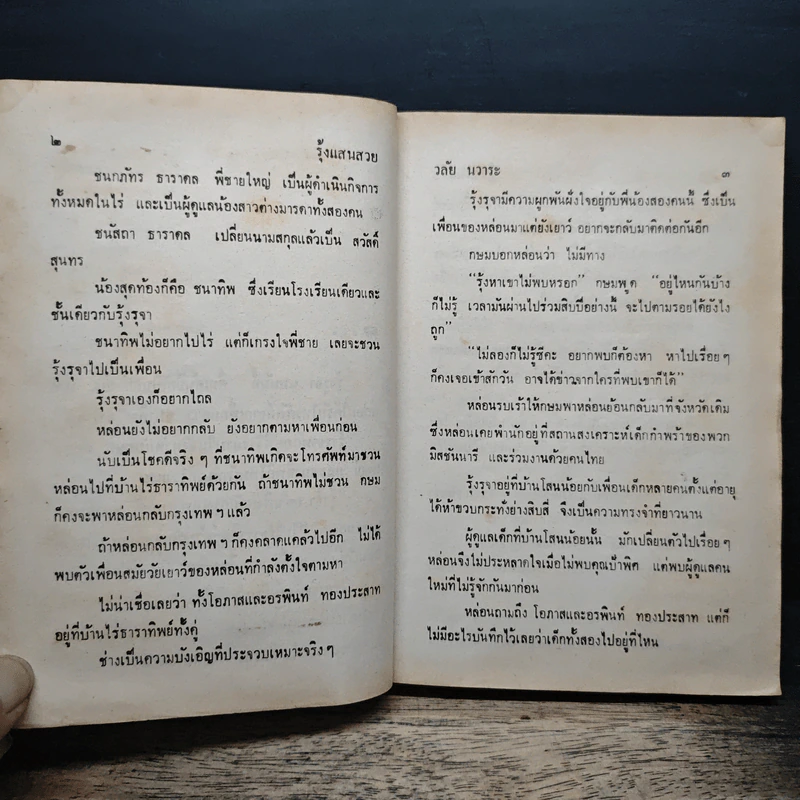 ๒
รุ้งแสนสวย
ชนกภัทร ธาราดล พี่ชายใหญ่ เป็นผู้ดำเนินกิจการ
ทั้งหมดในไร่ และเป็นผู้ดูแลน้องสาวต่างมารดาทั้งสองคน
ชนัสถา ธาราดล เปลี่ยนนามสกุลแล้วเป็น สวัสดิ์
สุนทร
น้องสุดท้องก็คือ ชนาทิพ ซึ่งเรียนโรงเรียนเดียวและ
ชั้นเดียวกับรุ้งรุจา
ชนาทิพไม่อยากไปไร่ แต่ก็เกรงใจพี่ชาย เลยจะชวน
รุ้งรุจาไปเป็นเพื่อน
รุ้งรุจาเองก็อยากไถล
หล่อนยังไม่อยากกลับ ยังอยากตามหาเพื่อนก่อน
นับเป็นโชคดีจริง ๆ ที่ชนาทิพเกิดจะโทรศัพท์มาชวน
หล่อนไปที่บ้านไร่ธาราทิพย์ด้วยกัน ถ้าชนาทิพไม่ชวน กษม
ก็คงจะพาหล่อนกลับกรุงเทพ ฯ แล้ว
ถ้าหล่อนกลับกรุงเทพ ฯ ก็คงคลาดแคล้วไปอีก ไม่ได้
พบตัวเพื่อนสมัยวัยเยาว์ของหล่อนที่กำลังตั้งใจตามหา
ไม่น่าเชื่อเลยว่า ทั้งโอภาสและอรพินท์ ทองประสาท
อยู่ที่บ้านไร่ธาราทิพย์ทั้งคู่
ช่างเป็นความบังเอิญที่ประจวบเหมาะจริง ๆ
วลัย นวาระ
๓
รุ้งรุจามีความผูกพันฝังใจอยู่กับพี่น้องสองคนนี้ ซึ่งเป็น
เพื่อนของหล่อนมาแต่ยังเยาว์ อยากจะกลับมาติดต่อกันอีก
กษมบอกหล่อนว่า ไม่มีทาง
“รุ้งหาเขาไม่พบหรอก” กษมพูด “อยู่ไหนกันบ้าง
ก็ไม่รู้ เวลามันผ่านไปร่วมสิบปีอย่างนี้ จะไปตามรอยได้ยังไง
ถูก”
“ไม่ลองก็ไม่รู้ซีคะ อยากพบก็ต้องหา หาไปเรื่อย ๆ
ก็คงเจอเข้าสักวัน อาจได้ข่าวจากใครที่พบเขาก็ได้”
หล่อนรบเร้าให้กษมพาหล่อนย้อนกลับมาที่จังหวัดเดิม
ซึ่งหล่อนเคยพำนักอยู่ที่สถานสงเคราะห์เด็กกำพร้าของพวก
มิสชันนารี และร่วมงานด้วยคนไทย
รุ้งรุจาอยู่ที่บ้านโสนน้อยกับเพื่อนเด็กหลายคนตั้งแต่อายุ
ได้ห้าขวบกระทั่งย่างสิบสี่ จึงเป็นความทรงจำที่ยาวนาน
ผู้ดูแลเด็กที่บ้านโสนน้อยนั้น มักเปลี่ยนตัวไปเรื่อย ๆ
หล่อนจึงไม่ประหลาดใจเมื่อไม่พบคุณป้าพิศ แต่พบผู้ดูแลคน
ใหม่ที่ไม่รู้จักกันมาก่อน
หล่อนถามถึง โอภาสและอรพินท์ ทองประสาท แต่ก็
ไม่มีอะไรบันทึกไว้เลยว่าเด็กทั้งสองไปอยู่ที่ไหน